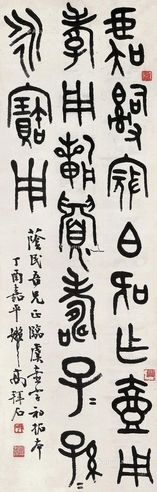 虞司寇白吹乍壺用
孝用祈眉壽子子孫
永寶用
蔭民吾兄正臨虞壺字初拓本
丁酉嘉平 高拜石